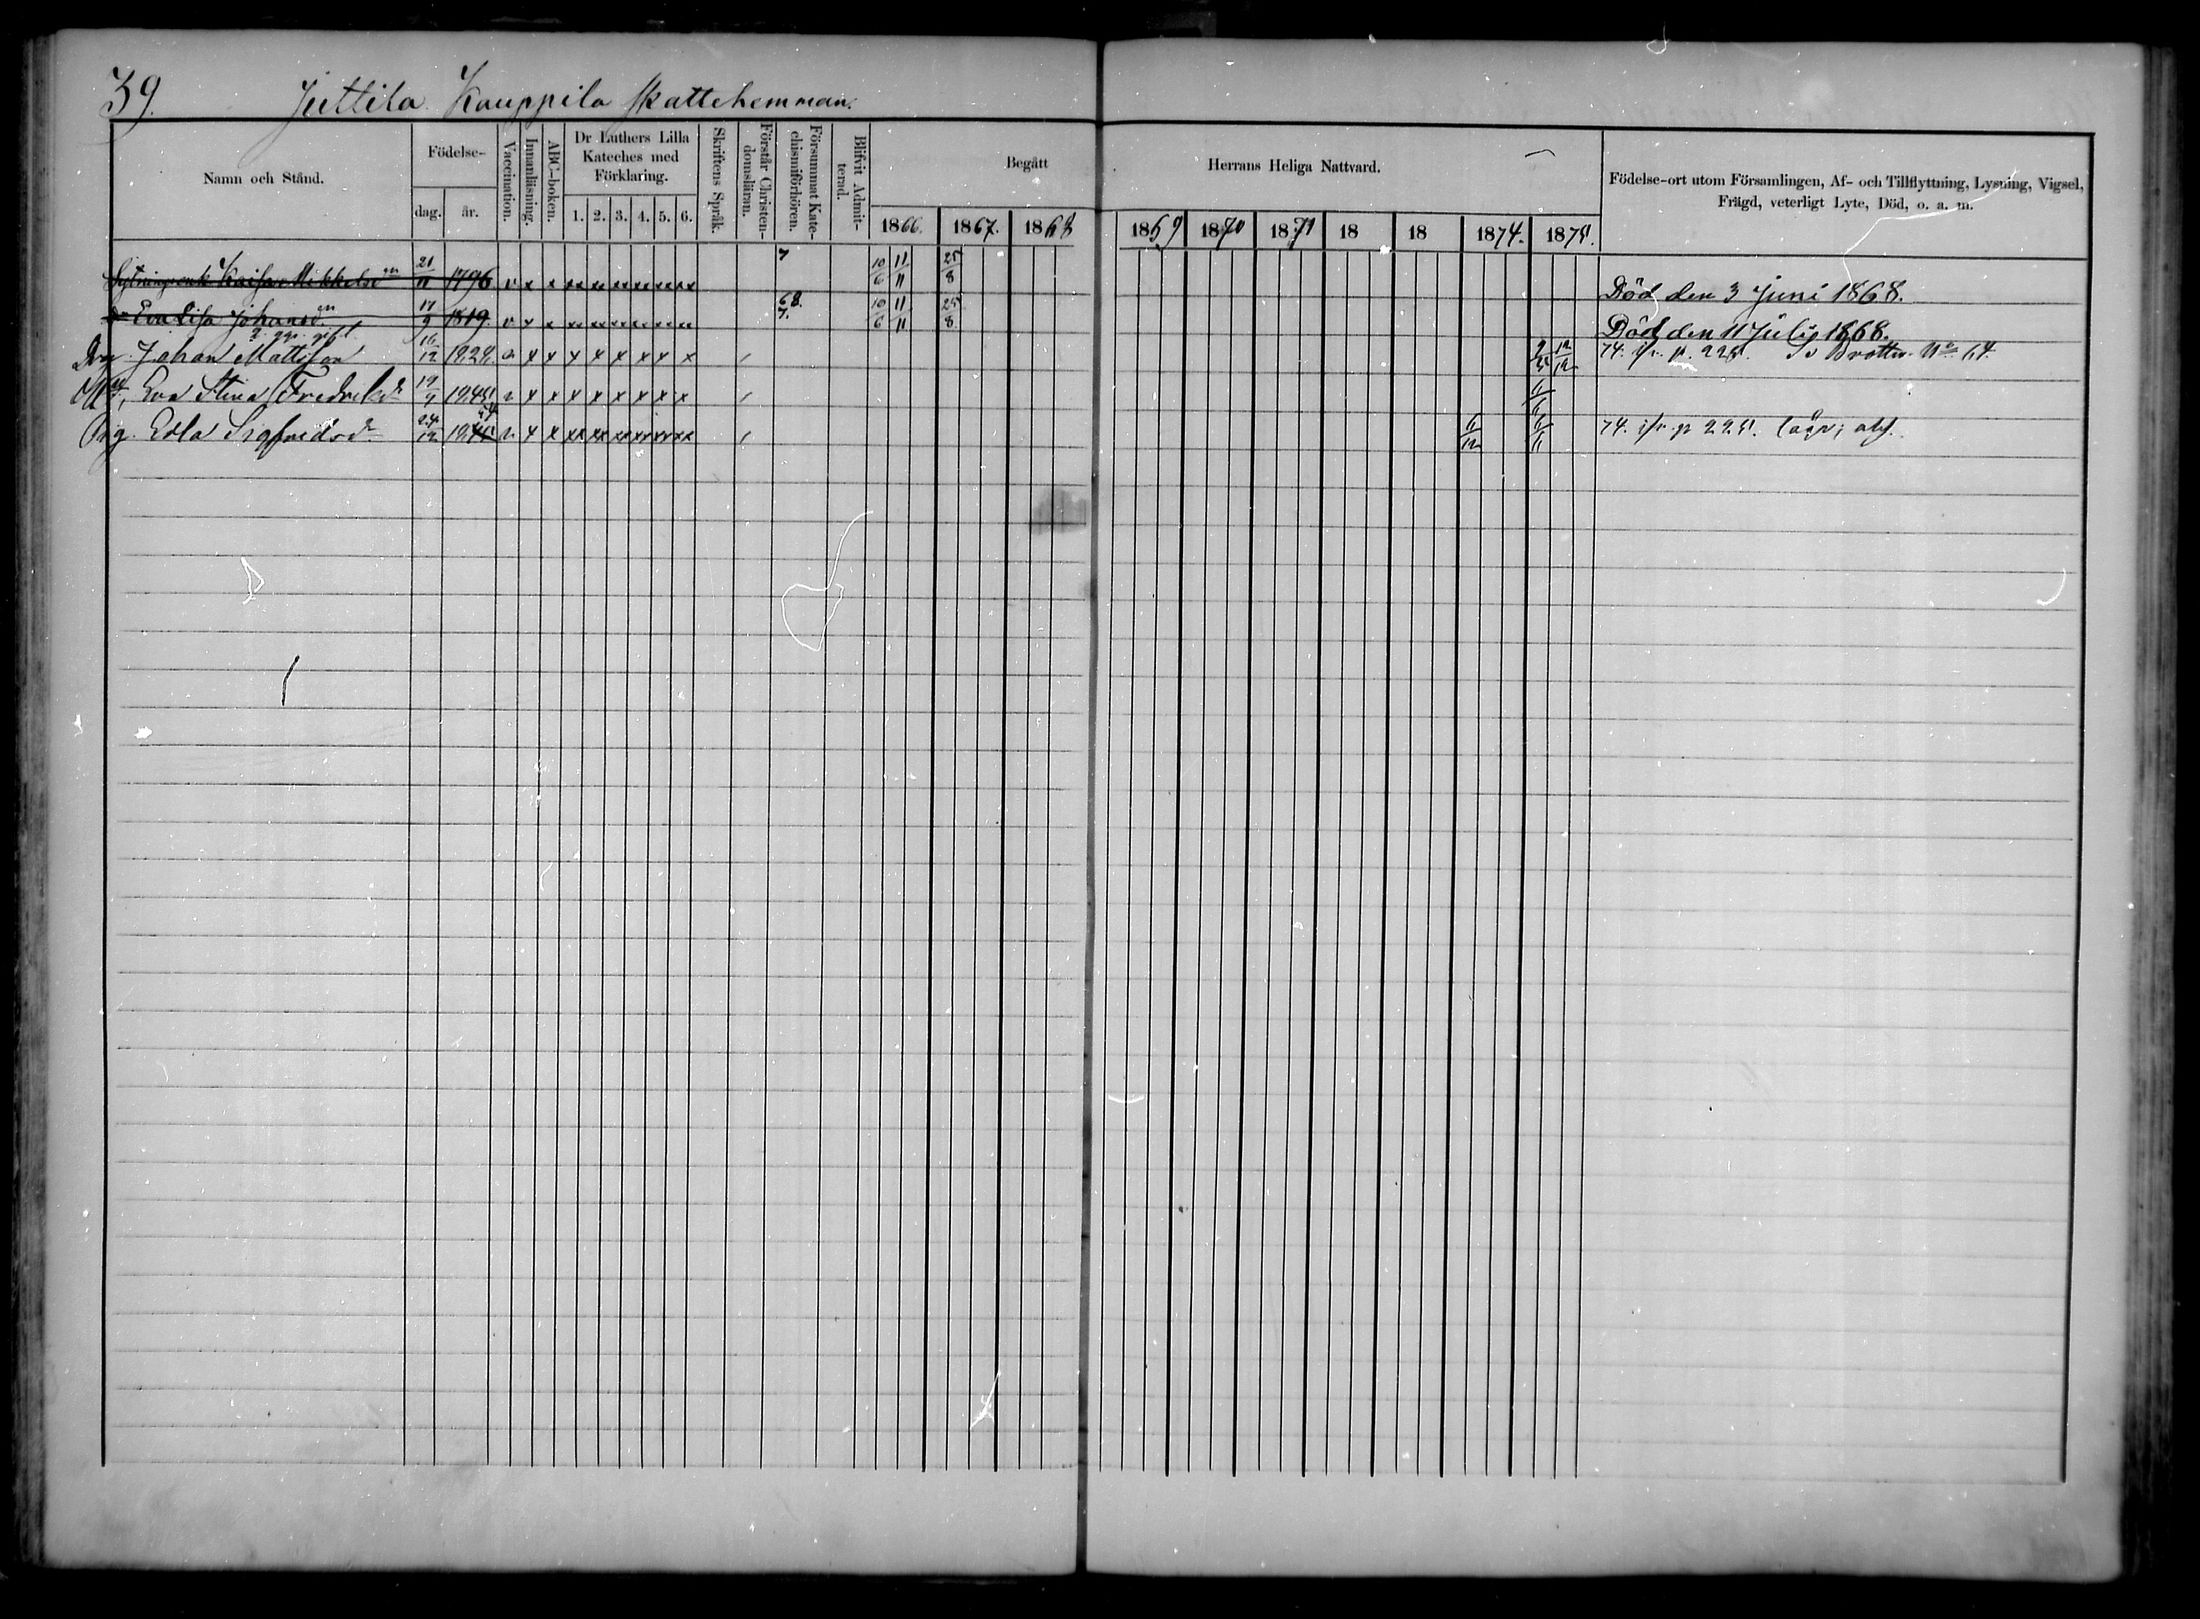 39. Juttila Kauppila skattehemman.
Namn och Stånd.
Födelse-
dag. år.
Vaccination.
Innanläsning.
ABC-boken.
Dr Luthers Lilla
Kateches med
Förklaring.
1. 2. 3. 4. 5. 6.
Skriftens Språk.
Förstår Christen-
domsläran.
Försummat Kate-
chismiförhören.
Blifvit Admit-
terad.
Begått Herrans Heliga Nattvard.
1866. 1867. 1868 1869 1870 1871 18 18 1874. 1875.
Födelse-ort utom Församlingen, Af- och Tillflyttning, Lysning, Vigsel,
Frägd, veterligt Lyte, Död, o. a. m.
Kaisa Mikkelsdn 21/11 1796 v x x 7 10/6 11/11 25/8 Död den 3 Juni 1868.
Eva Lisa Johansdn 17/9 1819. v x x 68. 7. 10/6 11/11 25/8 Död den 11 Julij 1868.
2 ggr gift
Johan Mattsson 16/12 x x x x x x x x 12/12 74. ifr. p. 225. No 64.
Eva Stina Fredriksdr 19/9 x x x x x x x x
Edla Sigfridsdr 24/12 x x xx xx xx xx xx xx 6/12 6/11 74. ifr. p 225.